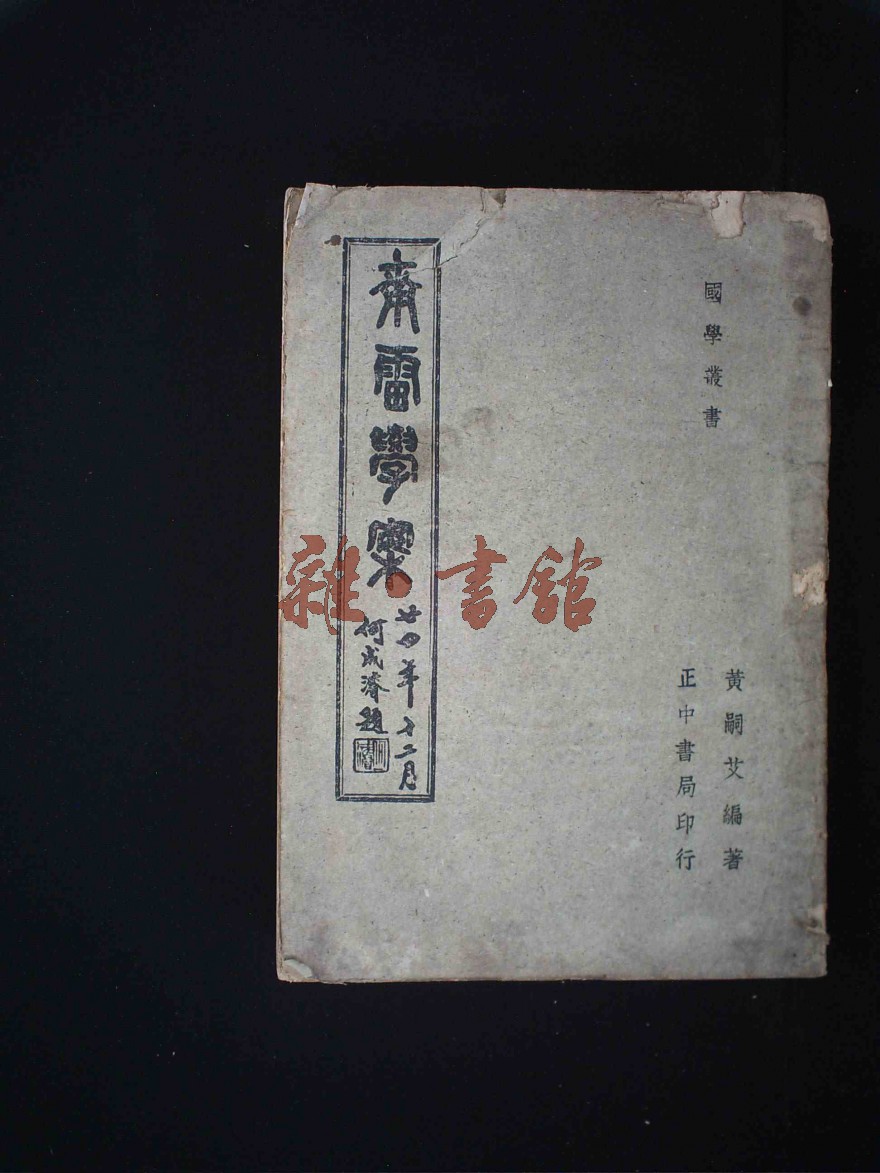 國學叢書
黃嗣艾編著
正中書局印行
南雷學案
廿四年十二月
何成濬題
雜·書館